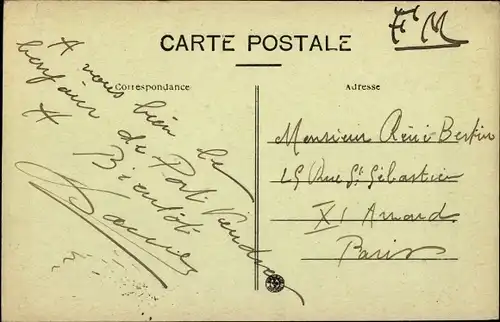 F M
CARTE POSTALE
Correspondance
A vous bien le
bonjour de Port Vendres
A Bientôt
Adresse
Monsieur Réné Bertin
25 Rue St Sébastien
XI Arround
Paris